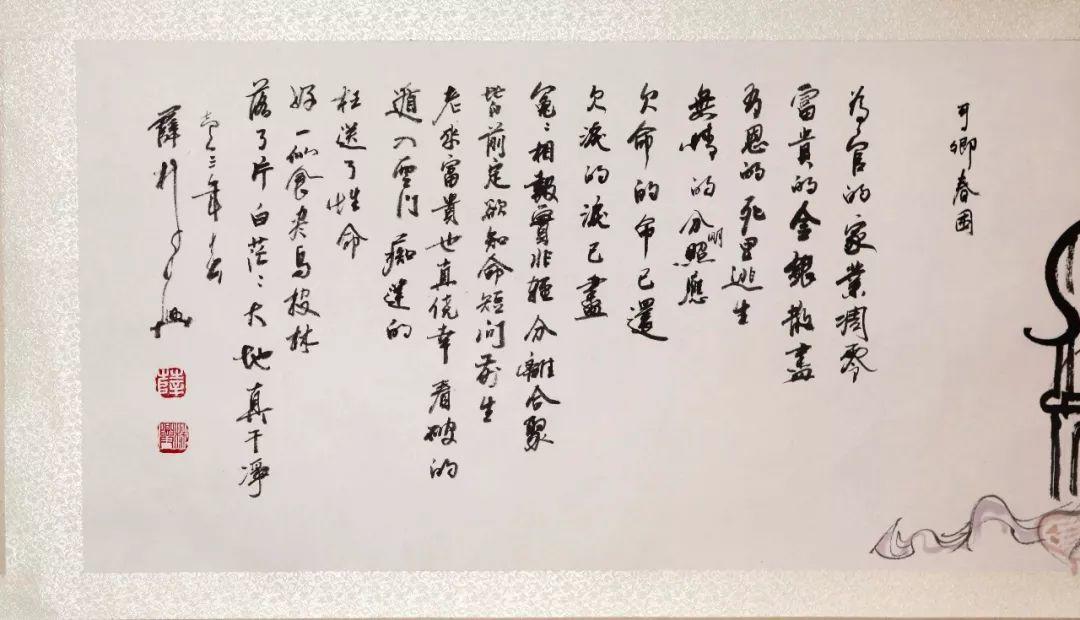 可卿春困
為官的家業凋零
富貴的金銀散盡
有恩的死里逃生
無情的分明照應
欠命的命已還
欠淚的淚已盡
冤〻相報實非輕分離合聚
皆前定欲知命短問前生
老來富貴也真侥幸看破的
遁入空門痴迷的
枉送了性命
好一似食尽鳥投林
落了片白茫〻大地真干净
三年春
薛
薛